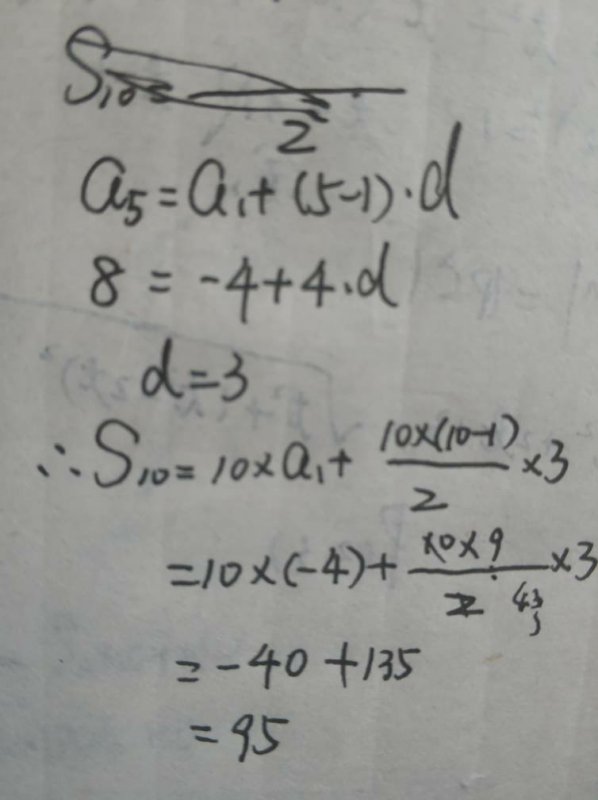 S₁₀=
2
a₅=a₁+(5-1)·d
8=-4+4·d
d=3
∴S₁₀=10×a₁+\frac{10×(10-1)}{2}×3
=10×(-4)+\frac{10×9}{2}×3
=-40+135
=95